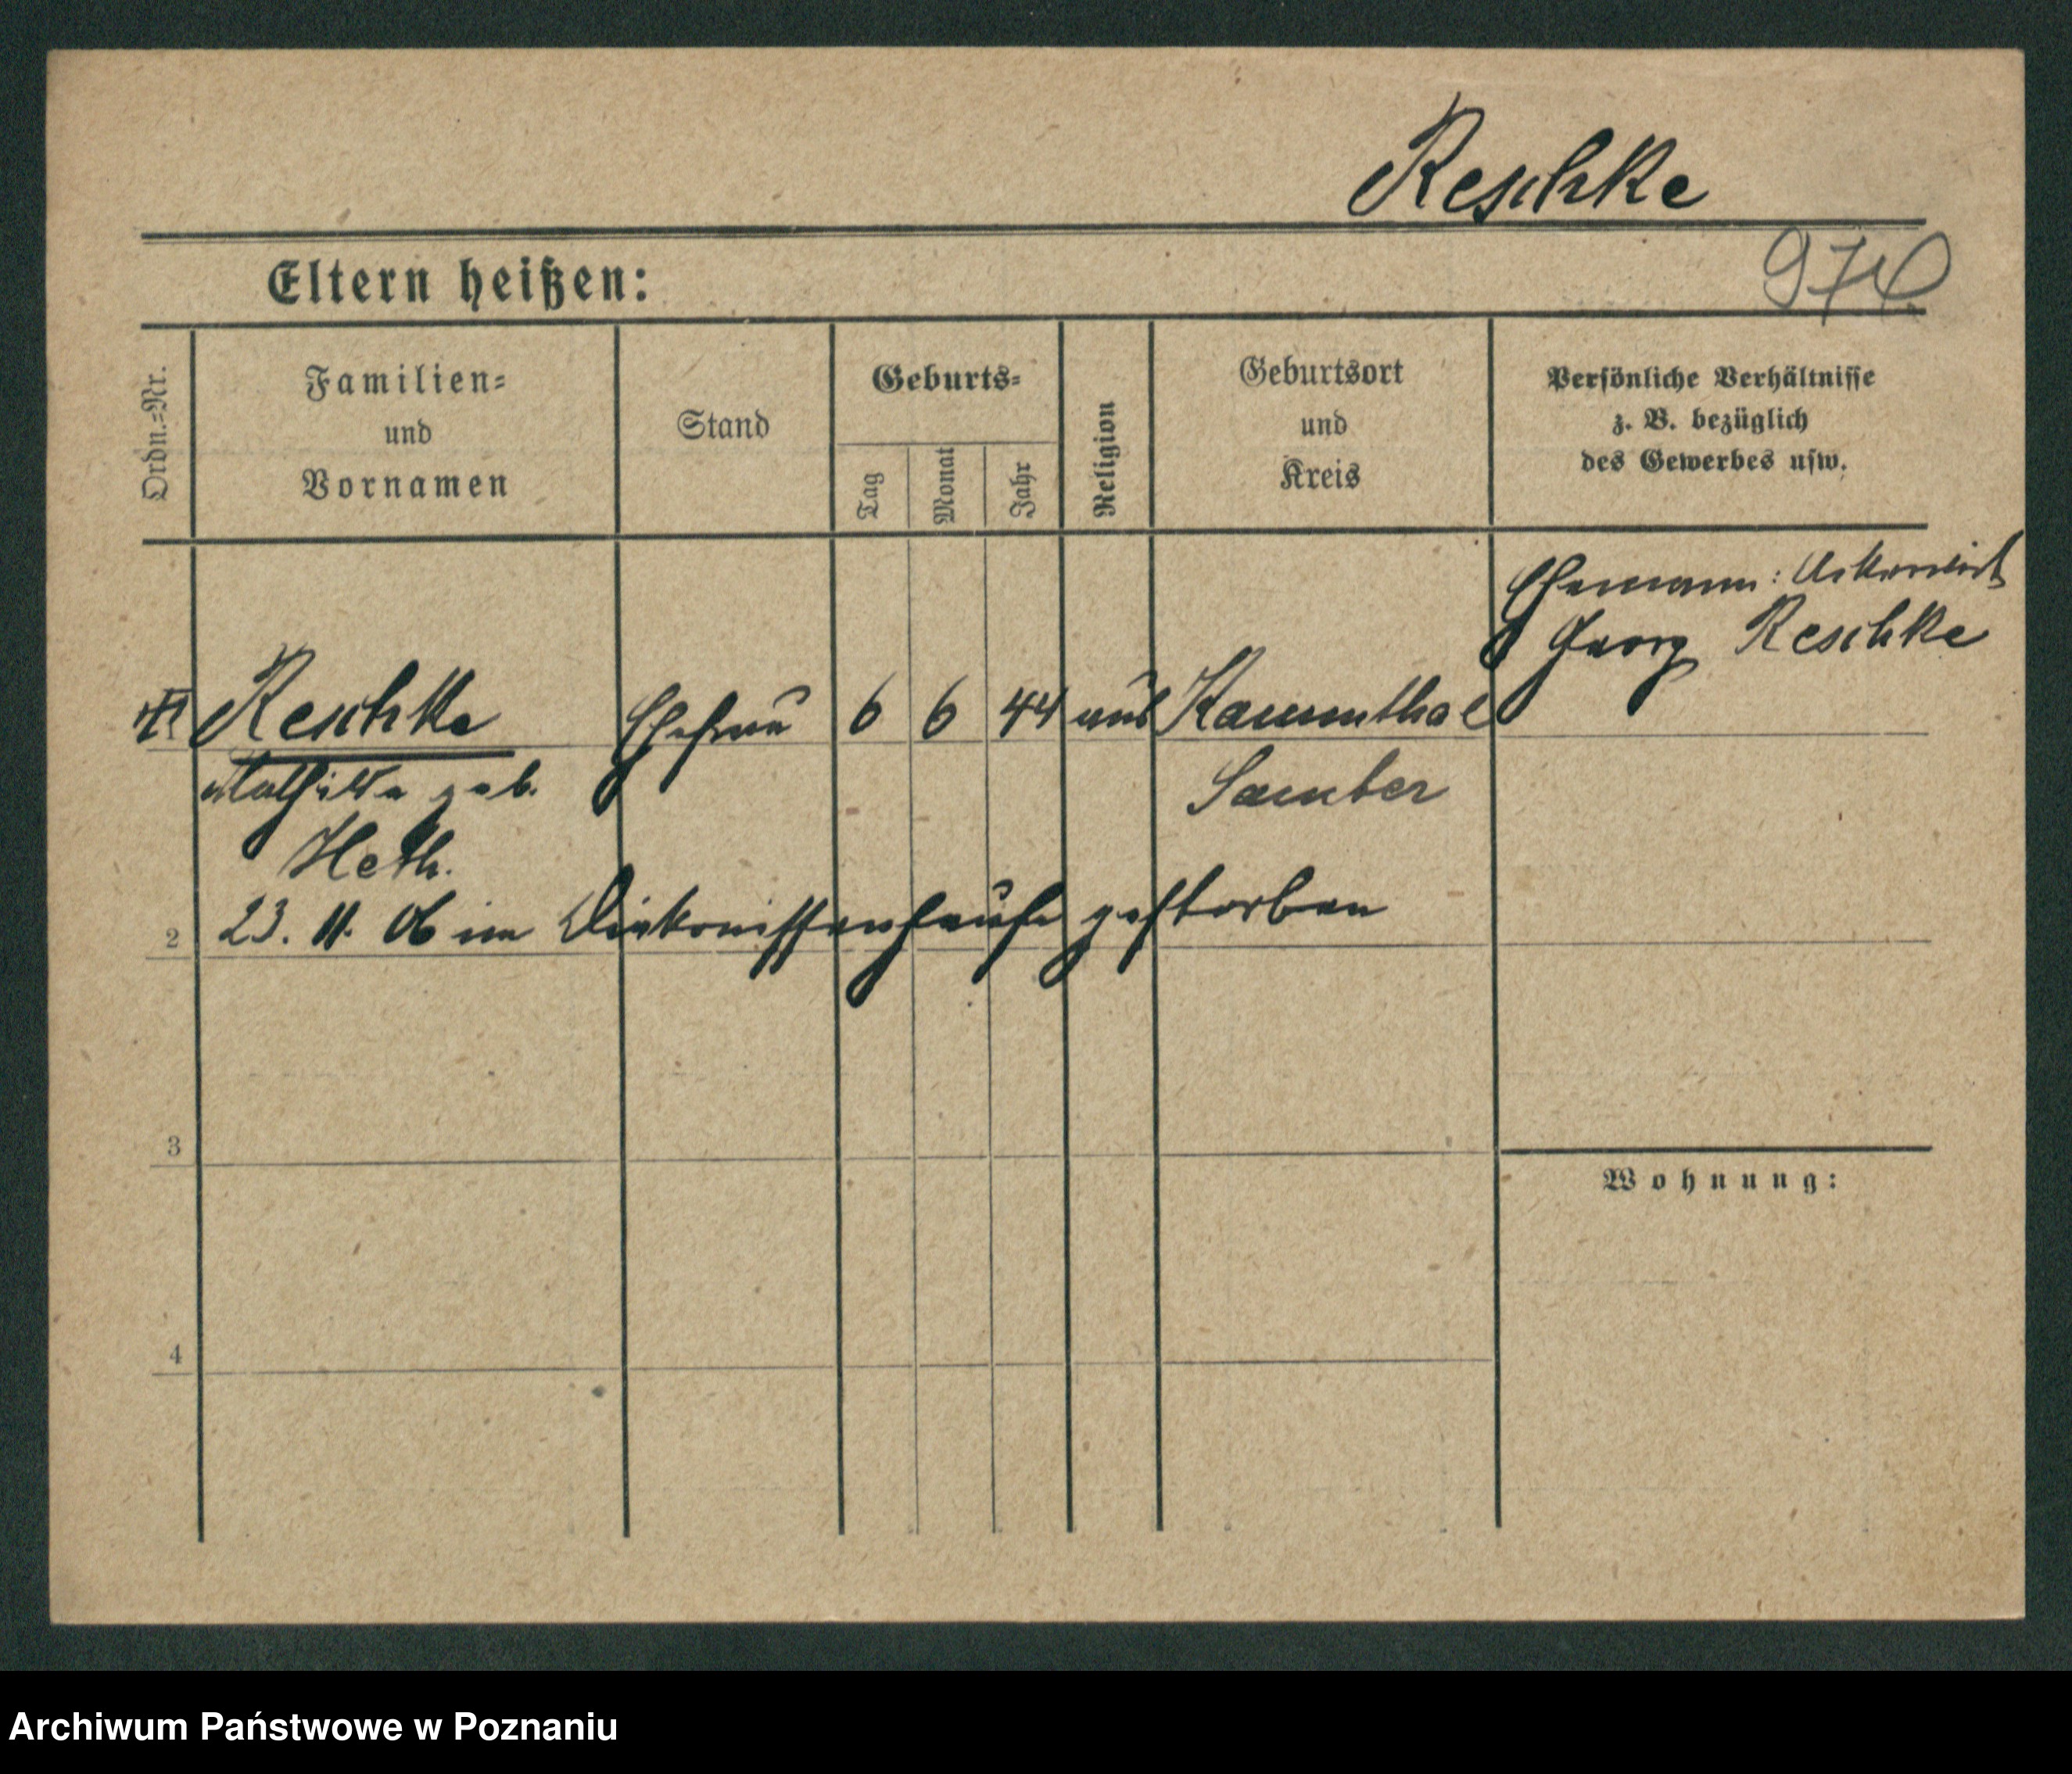 Reschke
Eltern heißen:
Ordn.=Nr.
Familien=
und
Vornamen
Stand
Geburts=
Tag
Monat
Jahr
Religion
Geburtsort
und
Kreis
Persönliche Verhältnisse
z. B. bezüglich
des Gewerbes usw.
Ehemann: Ackerwirt
Georg Reschke
Reschke Ehefrau 6 6 44 Kammthal
Mathilde geb. Samter
Heth.
2 23. 11. 06 im Diakonissenhause gestorben
3
Wohnung:
4
Archiwum Państwowe w Poznaniu